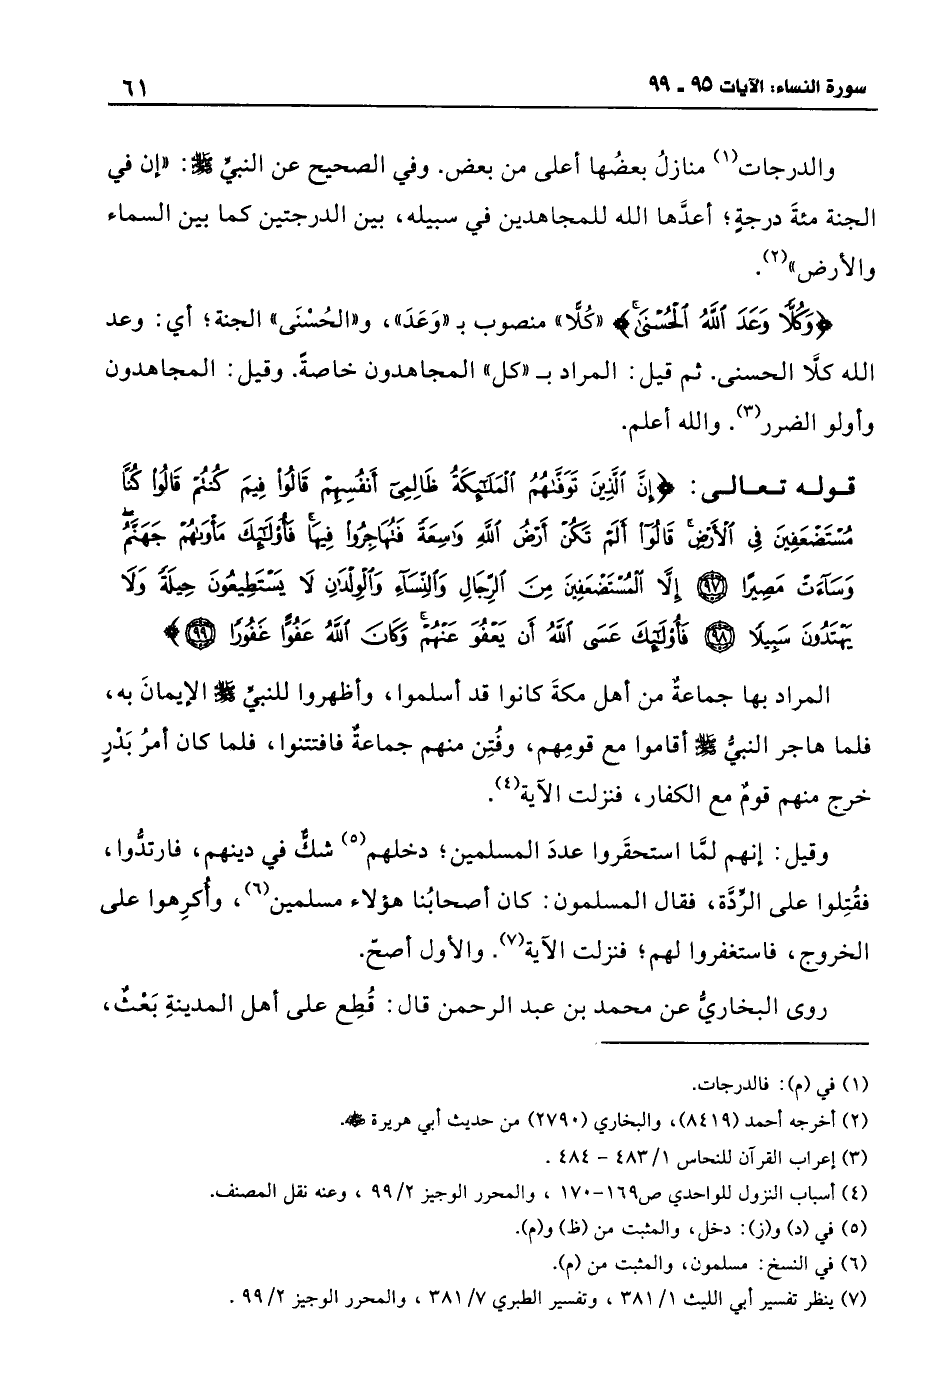 سورة النساء: الآيات ٩٥ ـ ٩٩
٦١
والدرجات(١) منازلُ بعضُها أعلى من بعض. وفي الصحيح عن النبيِّ ﷺ: «إن في
الجنة مئةَ درجةٍ؛ أعدَّها الله للمجاهدين في سبيله، بين الدرجتين كما بين السماء
والأرض»(٢).
﴿وَكُلًّا وَعَدَ ٱللَّهُ ٱلْحُسْنَىٰۚ﴾ «كُلًّا» منصوب بـ «وَعَدَ»، و«الحُسْنَى» الجنة؛ أي: وعد
الله كلَّا الحسنى. ثم قيل: المراد بـ «كل» المجاهدون خاصةً. وقيل: المجاهدون
وأولو الضرر(٣). والله أعلم.
قوله تعالى: ﴿إِنَّ ٱلَّذِينَ تَوَفَّىٰهُمُ ٱلْمَلَٰٓئِكَةُ ظَالِمِىٓ أَنفُسِهِمْ قَالُوا۟ فِيمَ كُنتُمْ قَالُوا۟ كُنَّا
مُسْتَضْعَفِينَ فِى ٱلْأَرْضِۚ قَالُوٓا۟ أَلَمْ تَكُنْ أَرْضُ ٱللَّهِ وَٰسِعَةً فَتُهَاجِرُوا۟ فِيهَاۚ فَأُو۟لَٰٓئِكَ مَأْوَىٰهُمْ جَهَنَّمُۖ
وَسَآءَتْ مَصِيرًا ٩٧ إِلَّا ٱلْمُسْتَضْعَفِينَ مِنَ ٱلرِّجَالِ وَٱلنِّسَآءِ وَٱلْوِلْدَٰنِ لَا يَسْتَطِيعُونَ حِيلَةً وَلَا
يَهْتَدُونَ سَبِيلًا ٩٨ فَأُو۟لَٰٓئِكَ عَسَى ٱللَّهُ أَن يَعْفُوَ عَنْهُمْۚ وَكَانَ ٱللَّهُ عَفُوًّا غَفُورًا ٩٩﴾
المراد بها جماعةٌ من أهل مكةَ كانوا قد أسلموا، وأظهروا للنبيِّ ﷺ الإيمانَ به،
فلما هاجر النبيُّ ﷺ أقاموا مع قومِهم، وفُتِن منهم جماعةٌ فافتتنوا، فلما كان أمرُ بَدْرٍ
خرج منهم قومٌ مع الكفار، فنزلت الآية(٤).
وقيل: إنهم لمَّا استحقَروا عددَ المسلمين؛ دخلهم(٥) شكٌّ في دينهم، فارتدُّوا،
فقُتِلوا على الرِّدَّة، فقال المسلمون: كان أصحابُنا هؤلاء مسلمين(٦)، وأُكرِهوا على
الخروج، فاستغفروا لهم؛ فنزلت الآية(٧). والأول أصحّ.
روى البخاريُّ عن محمد بن عبد الرحمن قال: قُطِع على أهل المدينةِ بَعْثٌ،
(١) في (م): فالدرجات.
(٢) أخرجه أحمد (٨٤١٩)، والبخاري (٢٧٩٠) من حديث أبي هريرة ﵁.
(٣) إعراب القرآن للنحاس ١/ ٤٨٣ – ٤٨٤ .
(٤) أسباب النزول للواحدي ص١٦٩-١٧٠ ، والمحرر الوجيز ٢/ ٩٩ ، وعنه نقل المصنف.
(٥) في (د) و(ز): دخل، والمثبت من (ظ) و(م).
(٦) في النسخ: مسلمون، والمثبت من (م).
(٧) ينظر تفسير أبي الليث ١/ ٣٨١ ، وتفسير الطبري ٧/ ٣٨١ ، والمحرر الوجيز ٢/ ٩٩ .